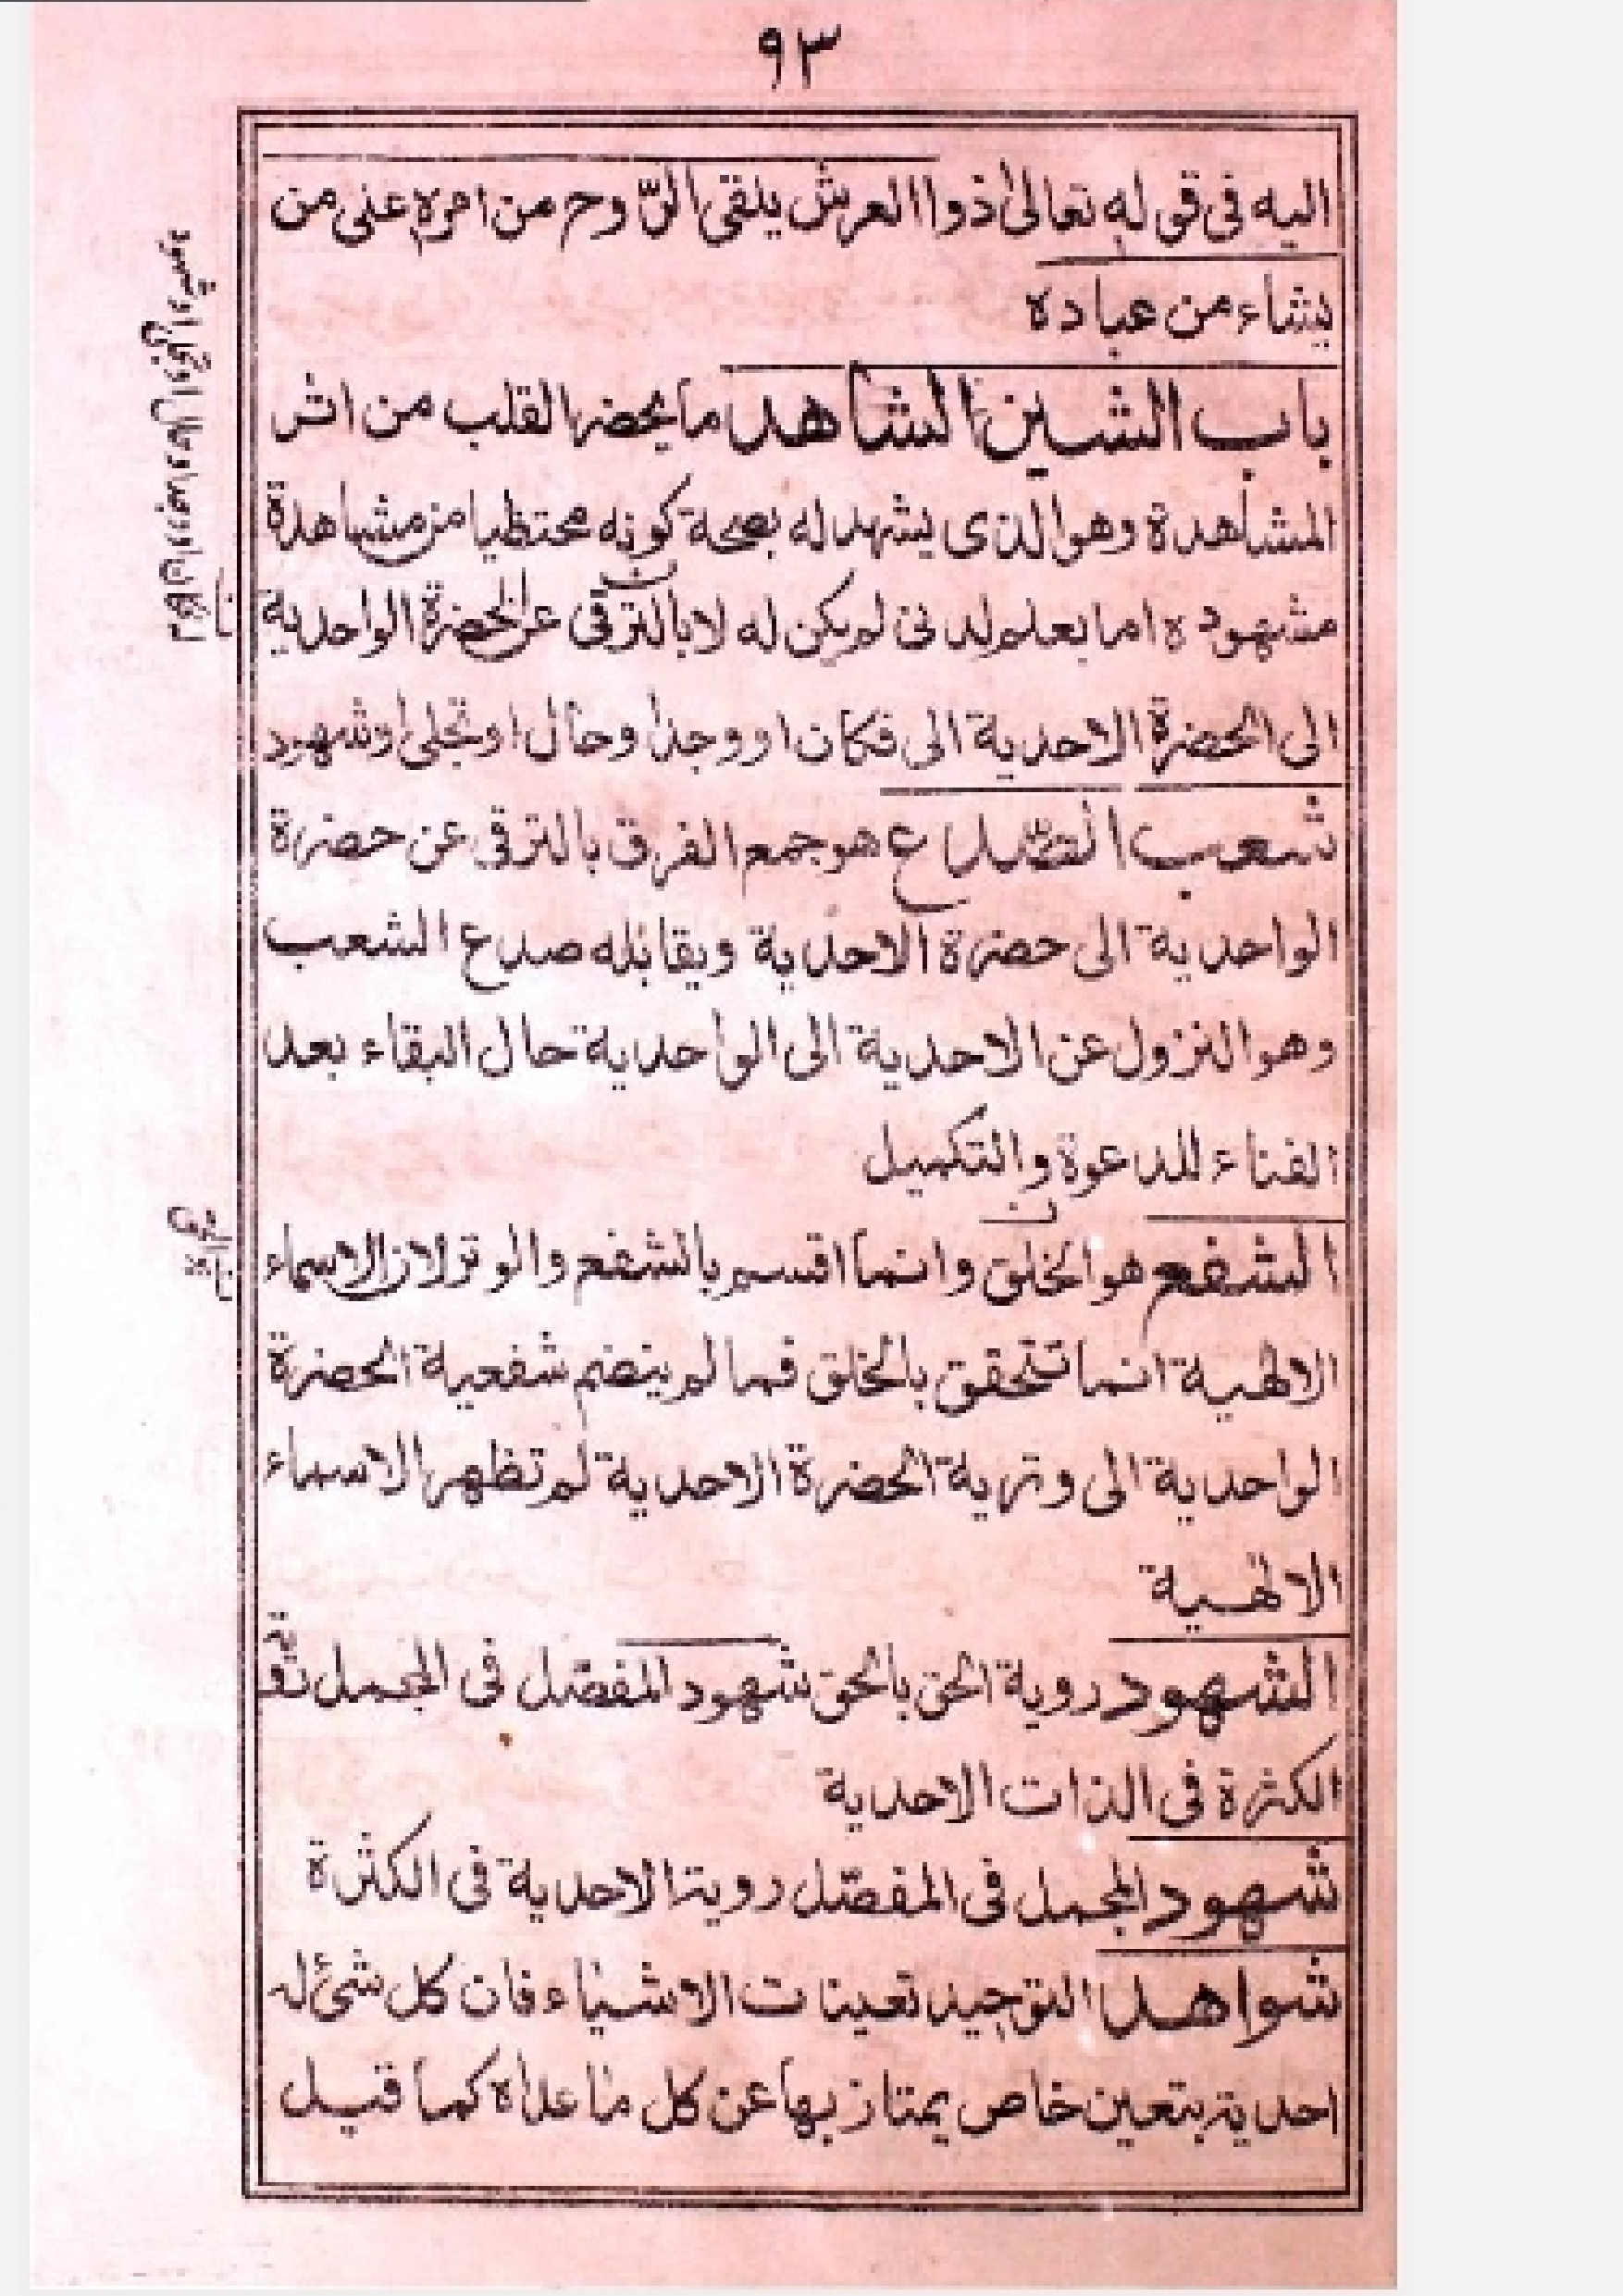 ٩٣
اليه فى قوله تعالىٰ ذوا العرش يلقى الرّوح من امره على من
يشاء من عباده
باب الشين الشاهد ما يحضر القلب من اثر
المشاهدة وهو الذى يشهد له بصحة كونه محتظيا من مشاهدة
مشهوده اما بعلم لدنى لم يكن له لا بالترقى عن الحضرة الواحدية
الى الحضرة الاحدية الى فكان او وجد او حال او تجلى او شهود
شعب الصّدع هو جمع الفرق بالترقى عن حضرة
الواحدية الى حضرة الاحدية ويقابله صدع الشعب
وهو النزول عن الاحدية الى الواحدية حال البقاء بعد
الفناء للدعوة والتكميل
الشفع هو الخلق وانما اقسم بالشفع والوتر لان الاسماء
الالهية انما تتحقق بالخلق فما لم ينضم شفعية الحضرة
الواحدية الى وترية الحضرة الاحدية لم تظهر الاسماء
الالهية
الشهود روية الحق بالحق شهود المفصّل فى المجمل
الكثرة فى الذات الاحدية
شهود المجمل فى المفصّل روية الاحدية فى الكثرة
شواهد التوحيد تعينات الاشياء فان كل شئ له
احدية بتعين خاص يمتاز بها عن كل ما عداه كما قيل